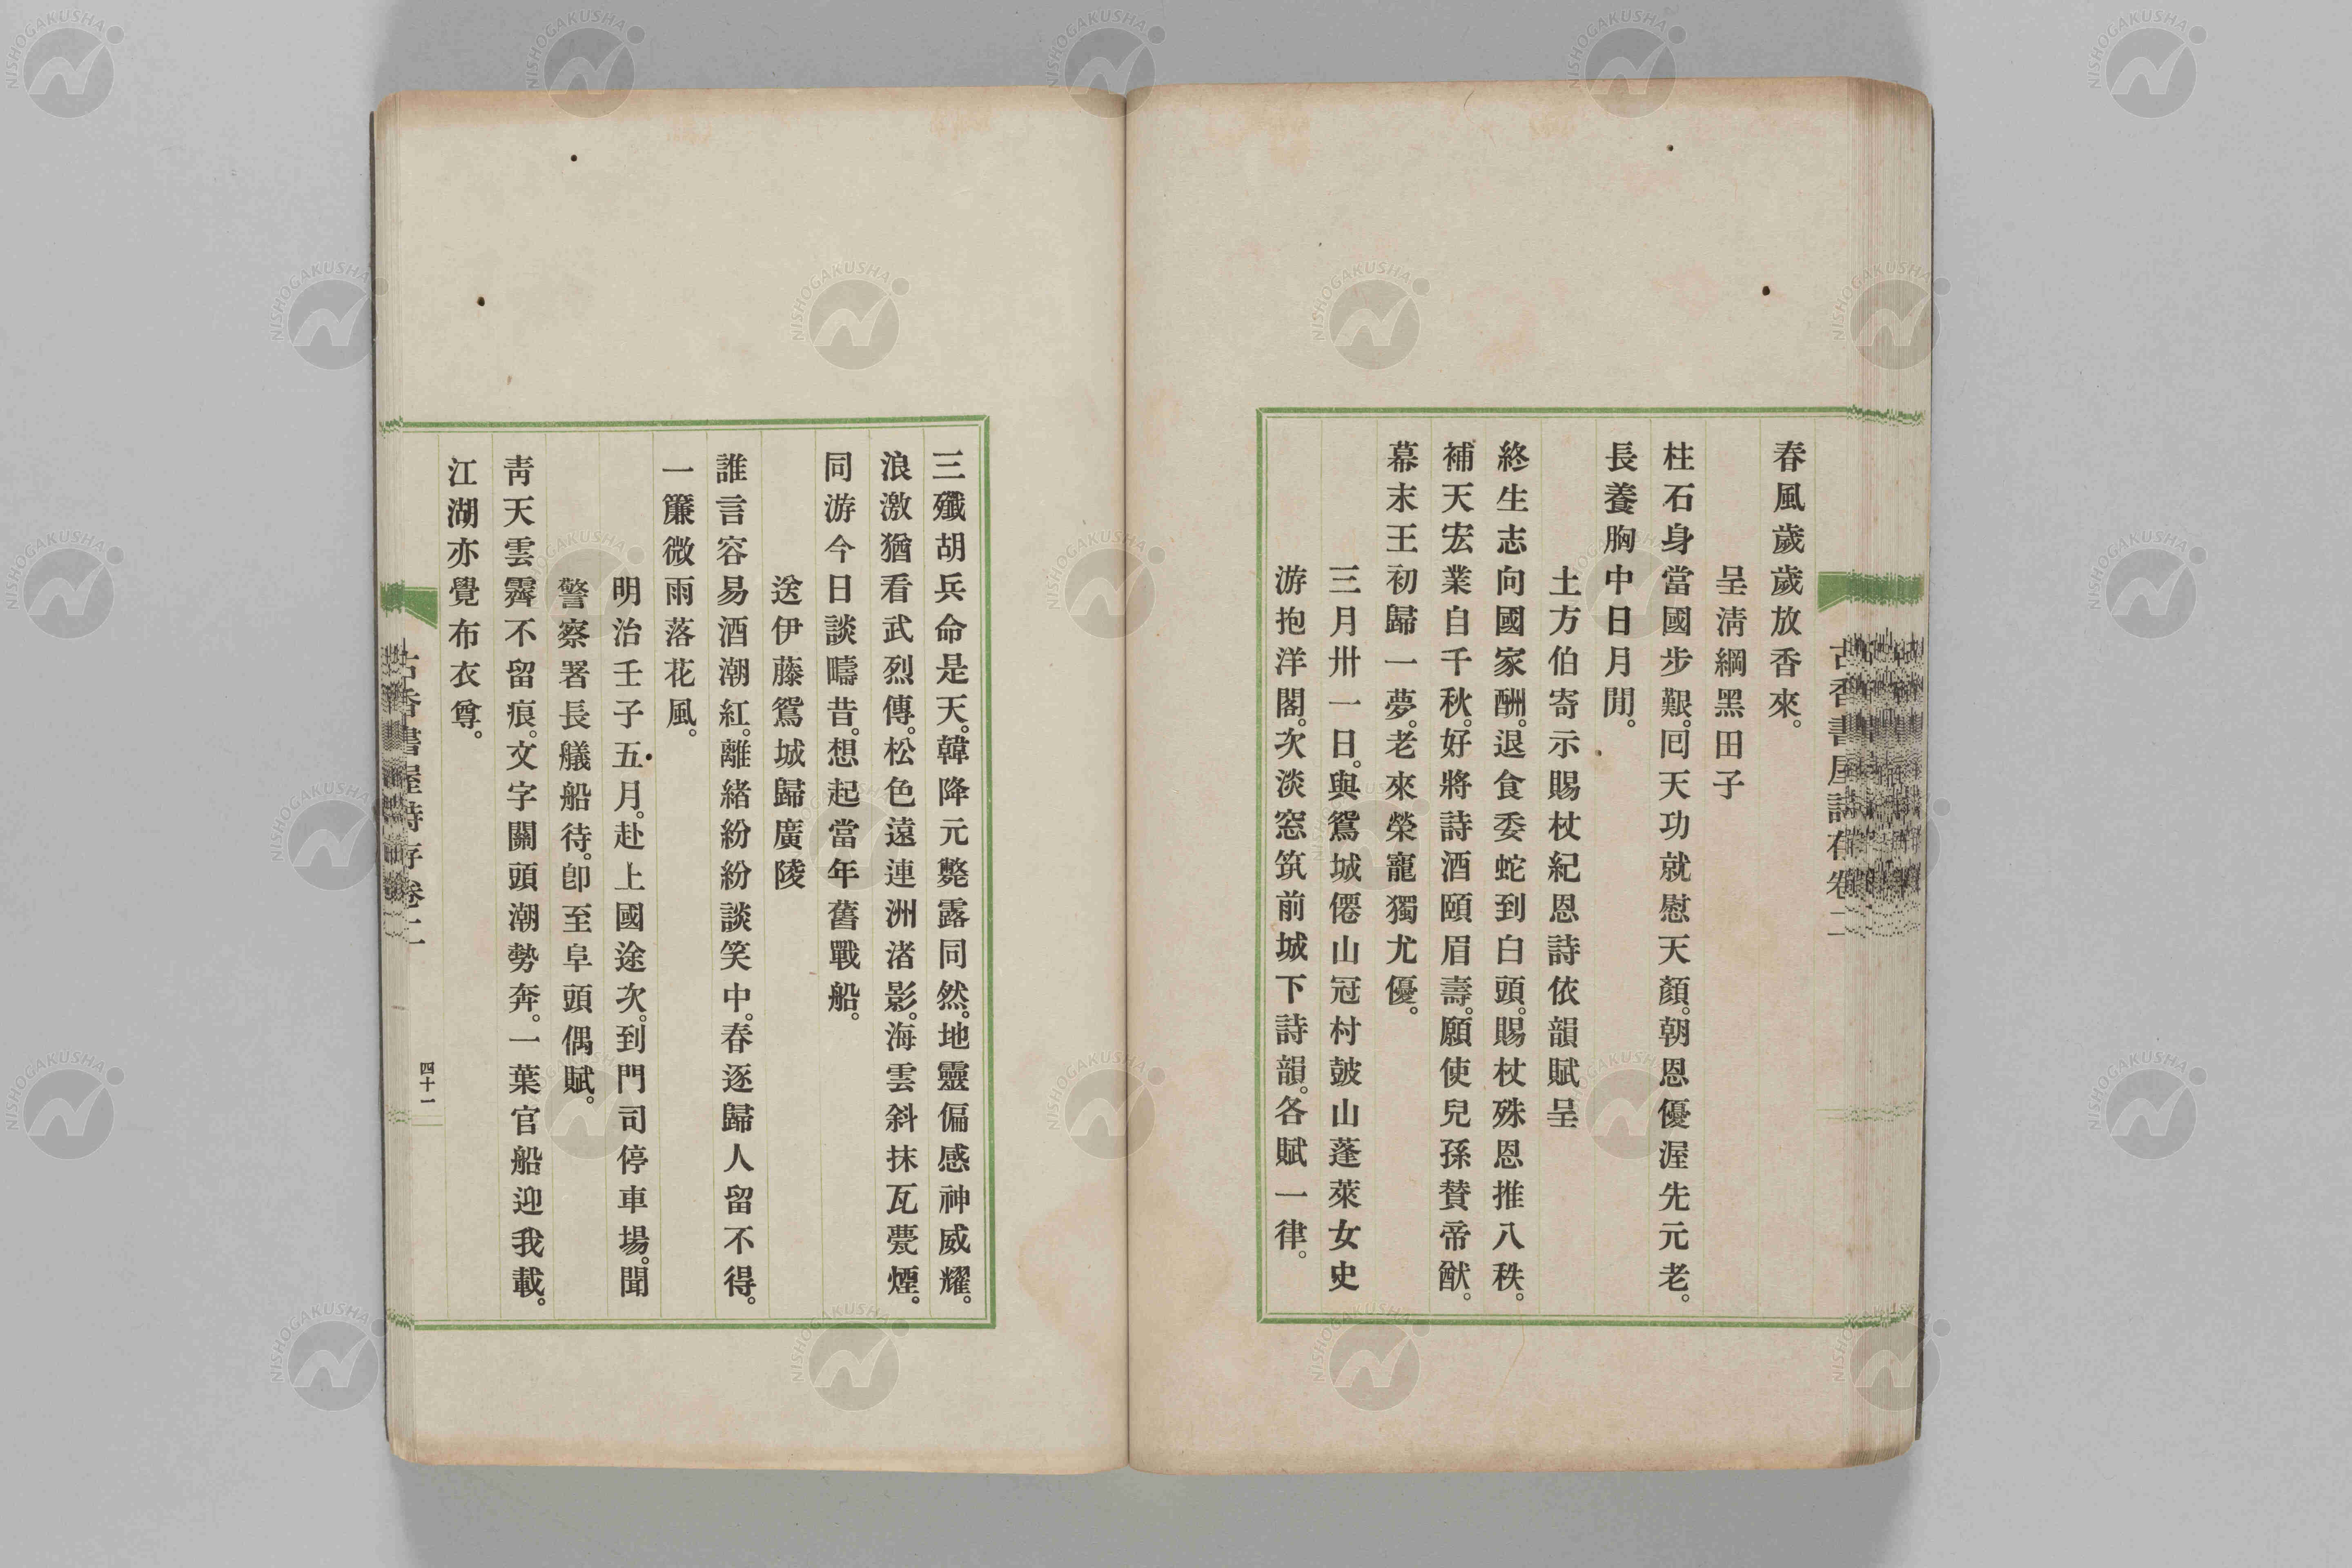 古香書屋詩存卷二
春風歲歲放香來。
呈淸綱黑田子
柱石身當國步艱。囘天功就慰天顏。朝恩優渥先元老。
長養胸中日月閒。
土方伯寄示賜杖紀恩詩依韻賦呈
終生志向國家酬。退食委蛇到白頭。賜杖殊恩推八秩。
補天宏業自千秋。好將詩酒頤眉壽。願使兒孫賛帝猷。
幕末王初歸一夢。老來榮寵獨尤優。
三月卅一日。與鴛城僊山冠村皷山蓬萊女史
游抱洋閣。次淡窓筑前城下詩韻。各賦一律。
三殲胡兵命是天。韓降元斃露同然。地靈偏感神威耀。
浪激猶看武烈傳。松色遠連洲渚影。海雲斜抹瓦甍煙。
同游今日談疇昔。想起當年舊戰船。
送伊藤鴛城歸廣陵
誰言容易酒潮紅。離緖紛紛談笑中。春逐歸人留不得。
一簾微雨落花風。
明治壬子五月。赴上國途次。到門司停車場。聞
警察署長艤船待。卽至阜頭偶賦。
靑天雲霽不留痕。文字關頭潮勢奔。一葉官船迎我載。
江湖亦覺布衣尊。
古香書屋詩存卷二
四十一
NISHOGAKUSHA